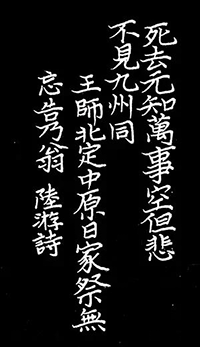 死去元知萬事空但悲
不見九州同
王師北定中原日家祭無
忘告乃翁 陸游詩